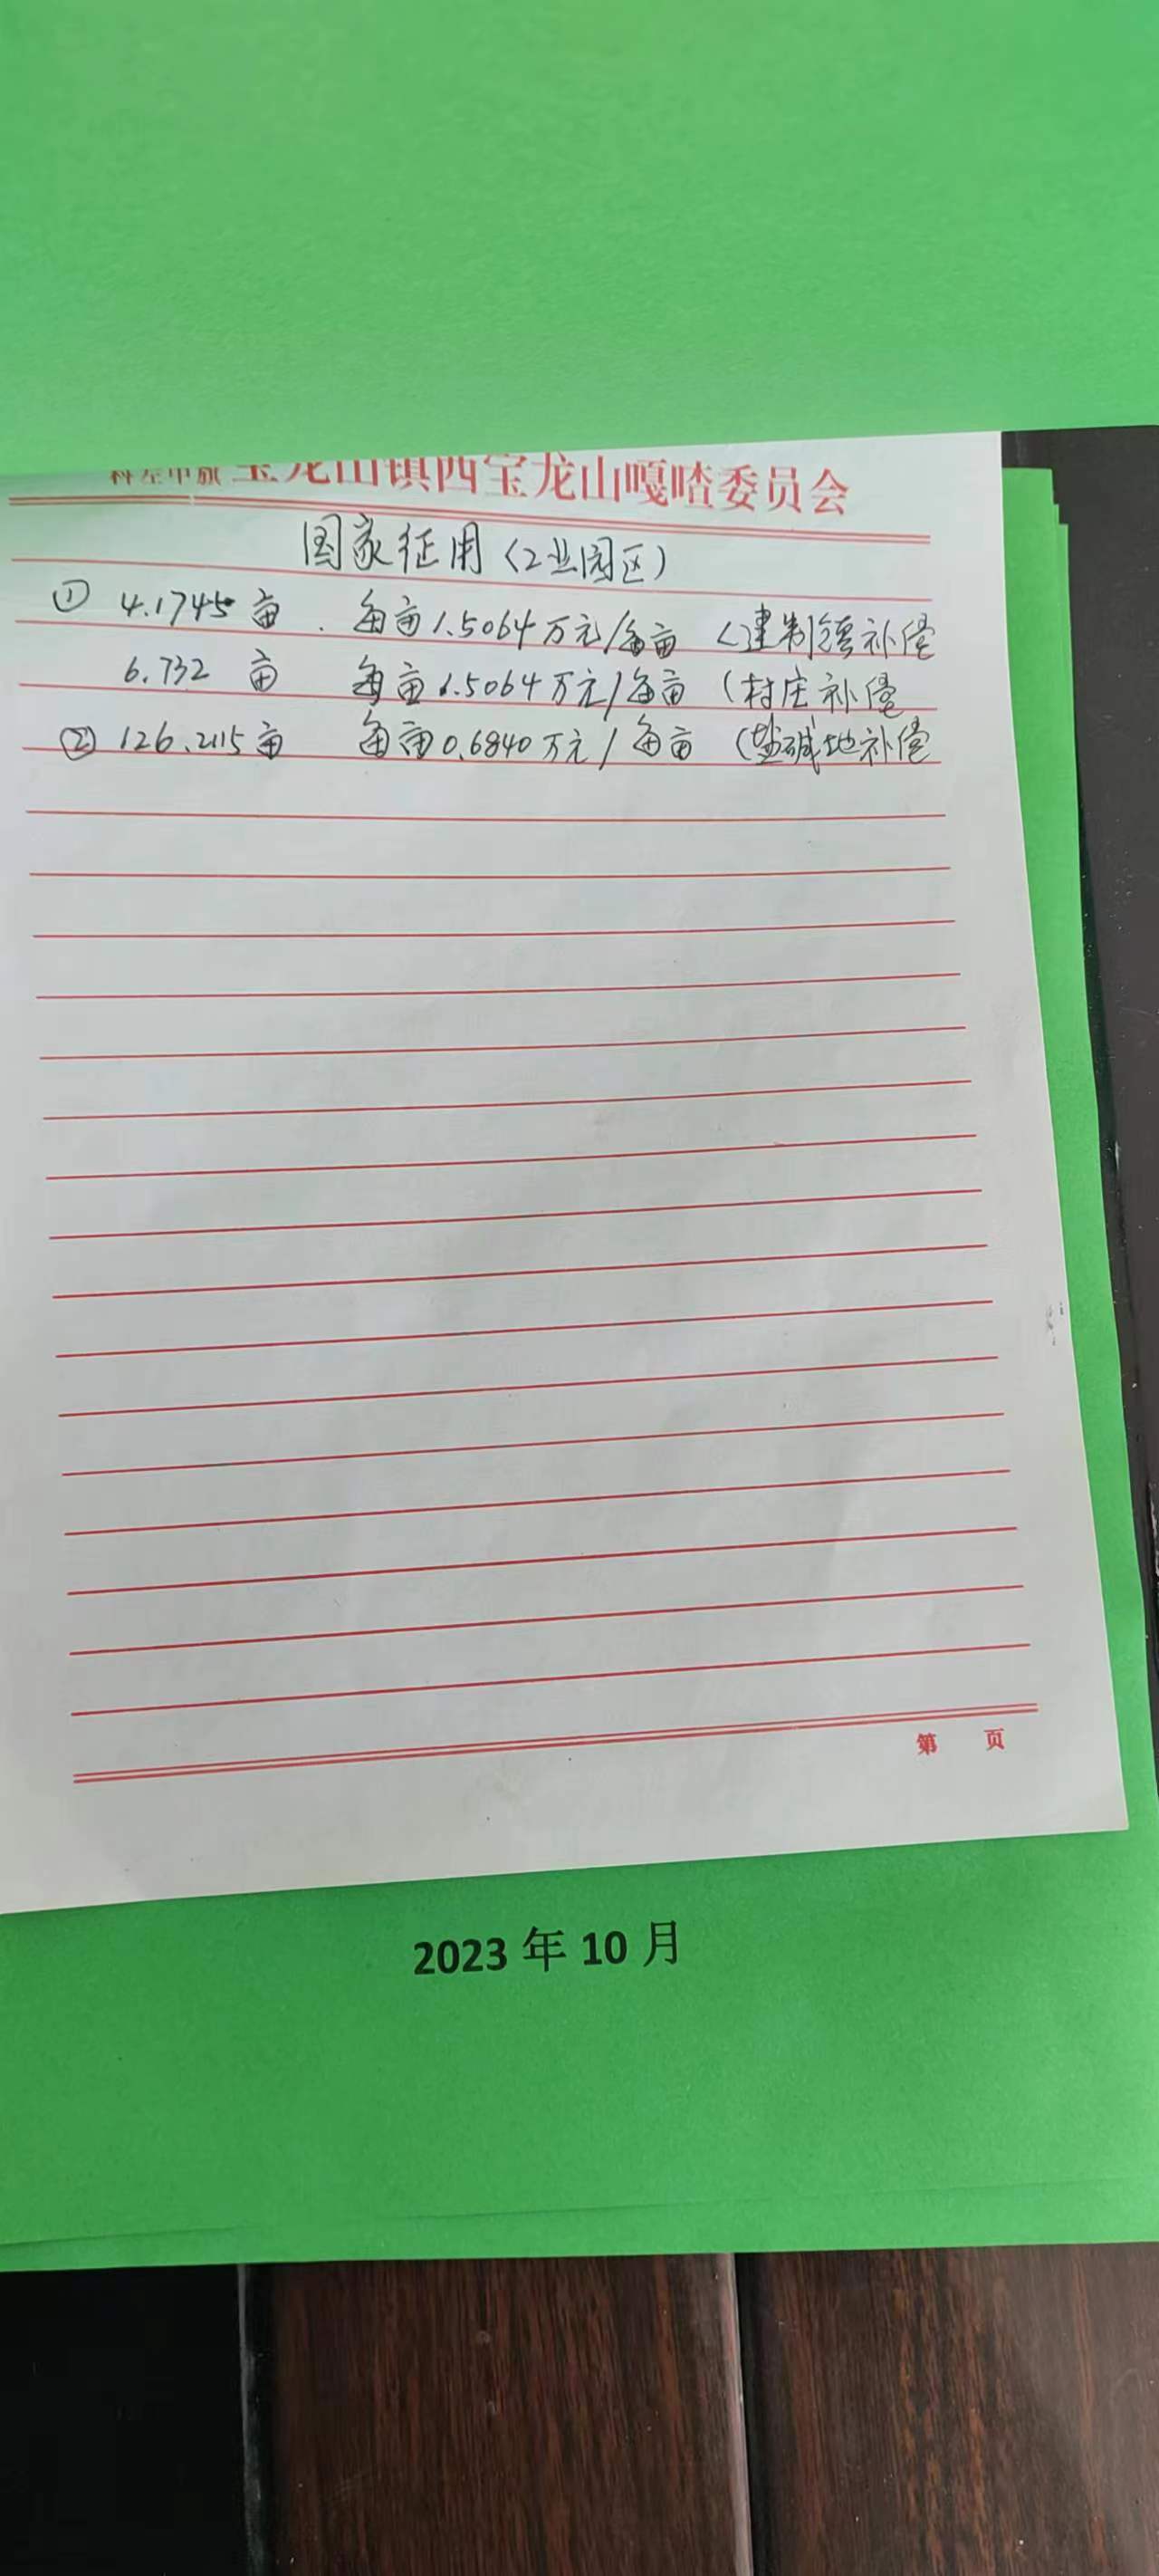 科左中旗 宝龙山镇西宝龙山嘎喳委员会
国家征用(工业园区)
① 4.1745亩. 每亩1.5064万元/每亩 (建制镇补偿
6.732 亩 每亩1.5064万元/每亩 (村庄补偿
② 126.2115亩 每亩0.6840万元/每亩 (盐碱地补偿
第 页
2023年10月